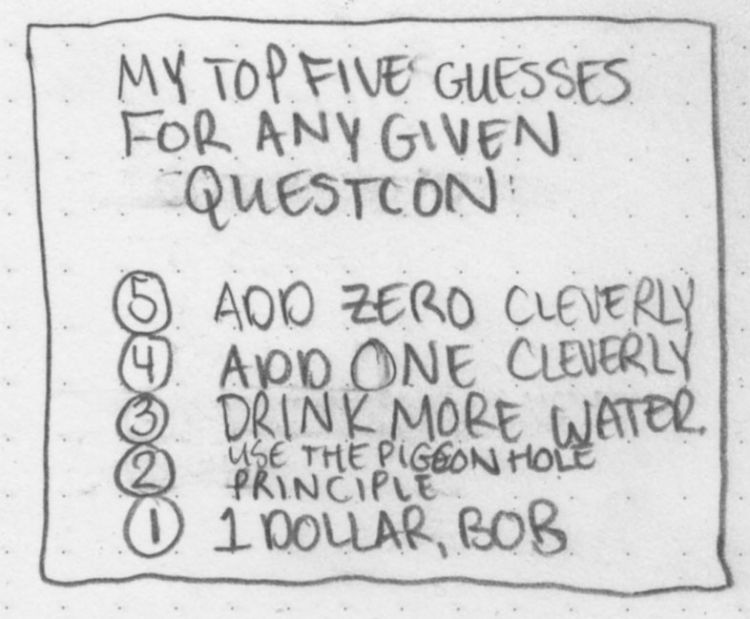 MY TOP FIVE GUESSES
FOR ANY GIVEN
QUESTION:
5 ADD ZERO CLEVERLY
4 ADD ONE CLEVERLY
3 DRINK MORE WATER.
2 USE THE PIGEON HOLE
PRINCIPLE
1 1 DOLLAR, BOB